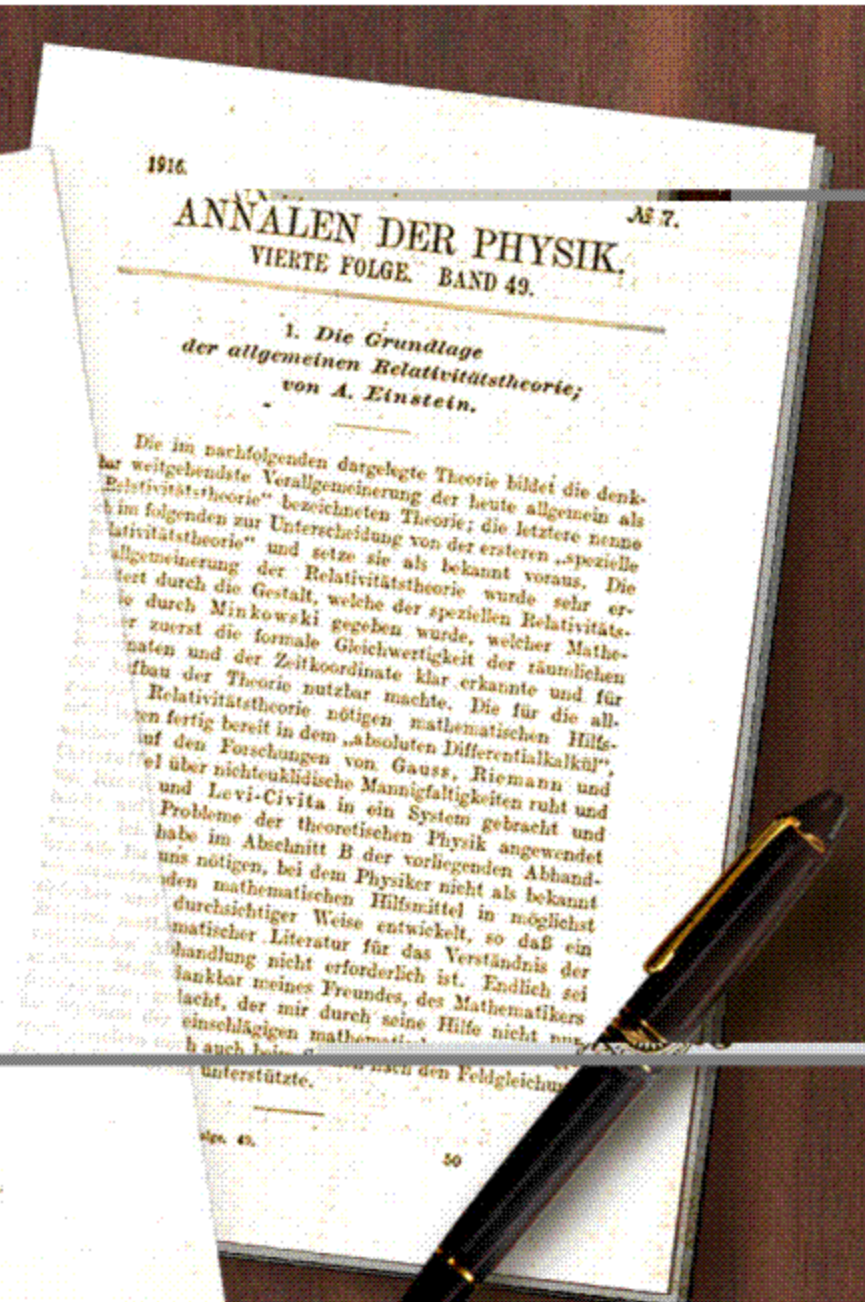 1916.
№ 7.
ANNALEN DER PHYSIK.
VIERTE FOLGE. BAND 49.
1. Die Grundlage
der allgemeinen Relativitätstheorie;
von A. Einstein.
Die im nachfolgenden dargelegte Theorie bildet die denk-
bar weitgehendste Verallgemeinerung der heute allgemein als
„Relativitätstheorie“ bezeichneten Theorie; die letztere nenne
im folgenden zur Unterscheidung von der ersteren „spezielle
lativitätstheorie“ und setze sie als bekannt voraus. Die
allgemeinerung der Relativitätstheorie wurde sehr er-
tert durch die Gestalt, welche der speziellen Relativitäts-
durch Minkowski gegeben wurde, welcher Mathe-
er zuerst die formale Gleichwertigkeit der räumlichen
naten und der Zeitkoordinate klar erkannte und für
fbau der Theorie nutzbar machte. Die für die all-
Relativitätstheorie nötigen mathematischen Hilfs-
en fertig bereit in dem „absoluten Differentialkalkül“,
uf den Forschungen von Gauss, Riemann und
el über nichteuklidische Mannigfaltigkeiten ruht und
und Levi-Civita in ein System gebracht und
Probleme der theoretischen Physik angewendet
habe im Abschnitt B der vorliegenden Abhand-
uns nötigen, bei dem Physiker nicht als bekannt
den mathematischen Hilfsmittel in möglichst
durchsichtiger Weise entwickelt, so daß ein
matischer Literatur für das Verständnis der
handlung nicht erforderlich ist. Endlich sei
dankbar meines Freundes, des Mathematikers
dacht, der mir durch seine Hilfe nicht nur
einschlägigen
h auch beim nach den Feldgleichun
unterstützte.
olge. 49.
50